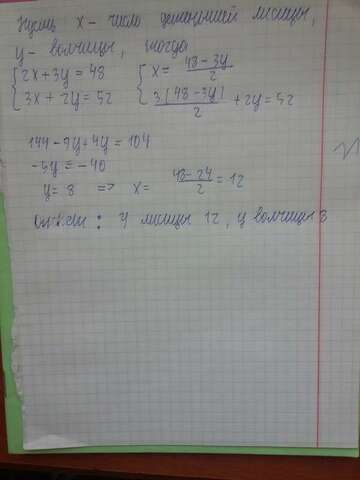 Пусть x - число детёнышей лисицы,
y - волчицы, тогда
{2x+3y=48 {x= (48-3y)/2
{3x+2y=52 {3(48-3y)/2 +2y=52
144-9y+4y=104
-5y=-40
y=8 => x= (48-24)/2 =12
Ответ: У лисицы 12, у волчицы 8